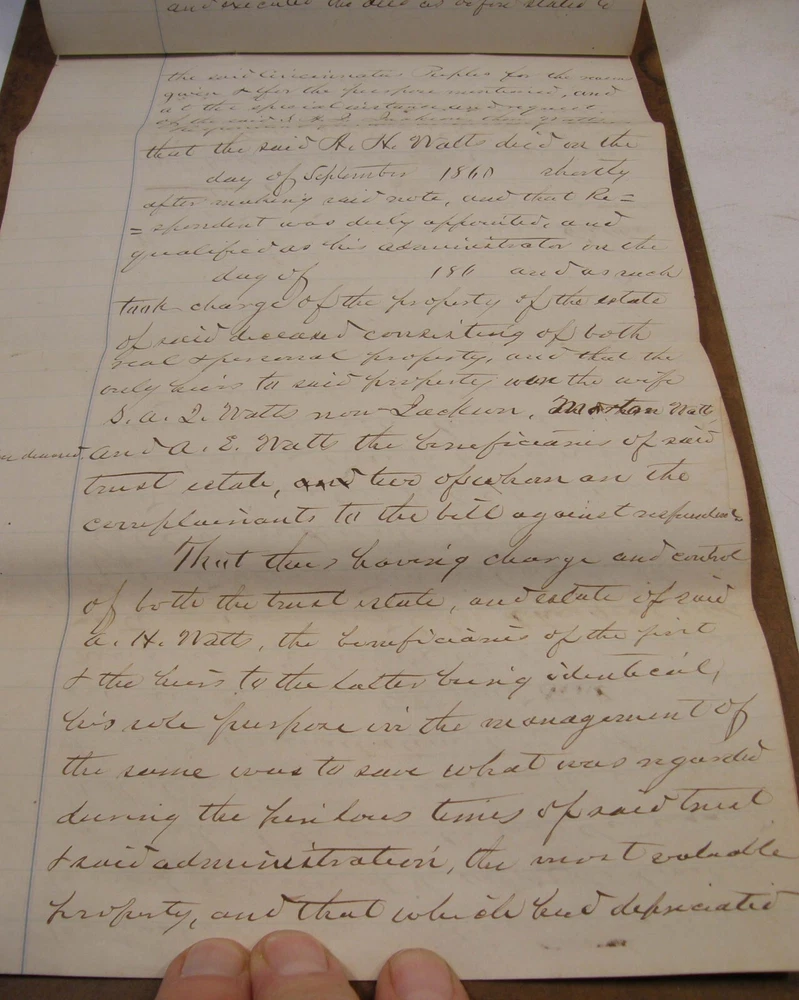 and executed the deed as before stated to
the said Cincinnatus Peoples for the reasons
given & for the purpose mentioned, and
at the special instance, and request
of the said S. A. I. Jackson then Watts
that the said A. H. Watts died on the
day of September 1861 shortly
after making said note, and that Re=
=spondent was duly appointed, and
qualified as his administrator on the
day of 186 and as such
took charge of the property of the estate
of said deceased consisting of both
real & personal property, and that the
only heirs to said property were the wife
S. A. I. Watts now Jackson, Watts
deceased and A. E. Watts the beneficiaries of said
trust estate, and two of whom are the
complainants to the bill against respondent
That thus having charge and control
of both the trust estate, and estate of said
A. H. Watts, the beneficiaries of the first
& the heirs to the latter being identical,
his sole purpose in the management of
the same was to save what was regarded
during the perilous times of said trust
& said administration, the most valuable
property, and that which had depreciated